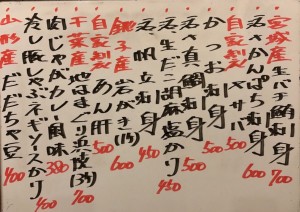 宮城産生バチ鮪刺身 700
活さかんぱち刺身 600
自家製〆サバ 500
かつお刺身 500
活真鯛刺身 500
活生だこ胡麻塩かり 450
活帆立刺身 450
銚子産岩がき(1ケ) 600
自家製あん肝 500
千葉産地はまぐり浜焼(3ケ) 700
肉じゃがカレー風味 380
冷し豚しゃぶネギソースかり 400
山形産だだちゃ豆 400